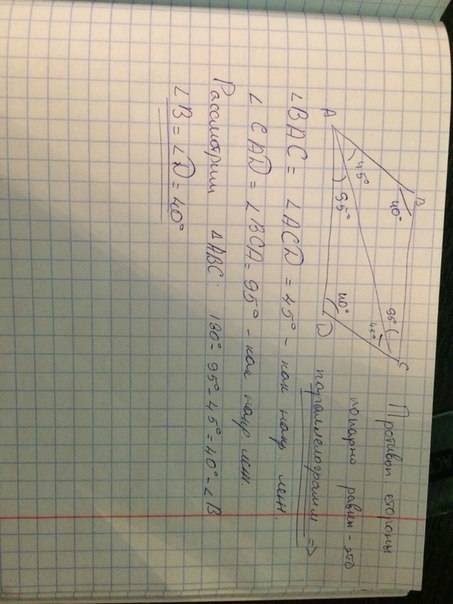 Противоп стороны
попарно равны - это
параллелограмм =>
B
40°
95°
45°
C
45°
95°
40°
A
D
∠BAC = ∠ACD = 45° - как накр леж.
∠CAD = ∠BCA = 95° - как накр леж.
Рассмотрим ΔABC: 180°- 95°- 45° = 40° - ∠B
∠B = ∠D = 40°